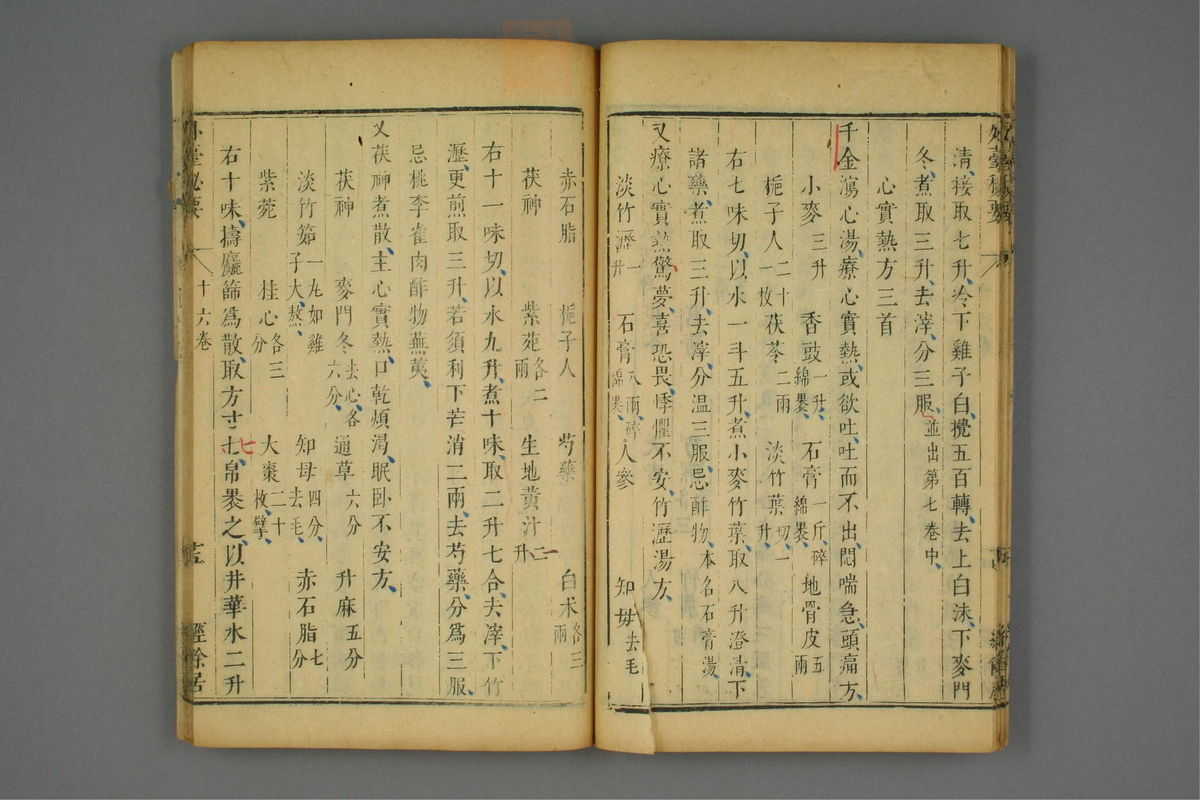 外臺秘要
清接取七升冷下雞子白攪五百轉去上白沫下麥門
冬煮取三升去滓分三服並出第七卷中
心實熱方三首
千金瀉心湯療心實熱或欲吐吐而不出悶喘急頭痛方
小麥三升 香豉一升綿褁 石膏一斤碎綿褁 地骨皮五兩
梔子人二十一枚 茯苓二兩 淡竹葉切一升
右七味切以水一斗五升煮小麥竹葉取八升澄清下
諸藥煮取三升去滓分溫三服忌酢物本名石膏湯
又療心實熱驚夢喜恐畏悸懼不安竹瀝湯方
淡竹瀝一升 石膏八兩碎綿褁 人參 知母去毛
赤石脂 梔子人 芍藥 白朮各三兩
茯神 紫菀各二兩 生地黃汁二升
右十一味切以水九升煮十味取二升七合去滓下竹
瀝更煎取三升若須利下芒消二兩去芍藥分爲三服
忌桃李雀肉酢物蕪荑
又茯神煮散主心實熱口乾煩渴眠卧不安方
茯神 麥門冬去心各六分 通草六分 升麻五分
淡竹筎一丸如雞子大熬 知母四分去毛 赤石脂七分
紫菀 桂心各三分 大棗二十枚擘
右十味擣麤篩爲散取方寸七帛褁之以井華水二升
外臺秘要 十六卷 經餘居